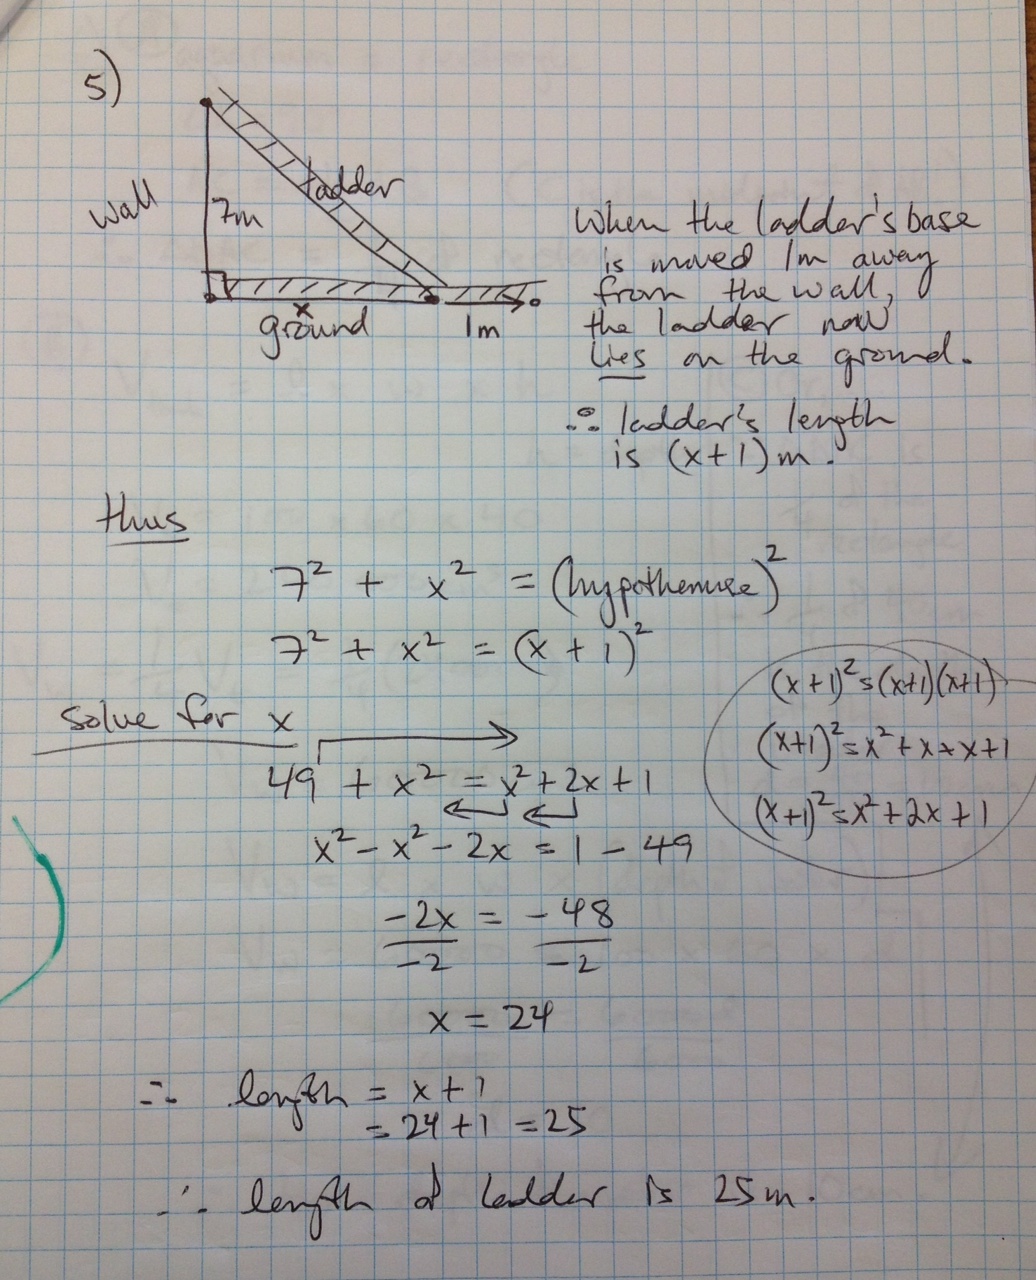 5)
wall
7m
ladder
x
ground
1m
When the ladder's base
is moved 1m away
from the wall,
the ladder now
lies on the ground.
∴ ladder's length
is (x+1)m.
thus
7² + x² = (hypothenuse)²
7² + x² = (x + 1)²
solve for x
49 + x² = x² + 2x + 1
x² - x² - 2x = 1 - 49
-2x = -48
-2 -2
x = 24
(x+1)² = (x+1)(x+1)
(x+1)² = x² + x + x + 1
(x+1)² = x² + 2x + 1
∴ length = x + 1
= 24 + 1 = 25
∴ length of ladder is 25m.